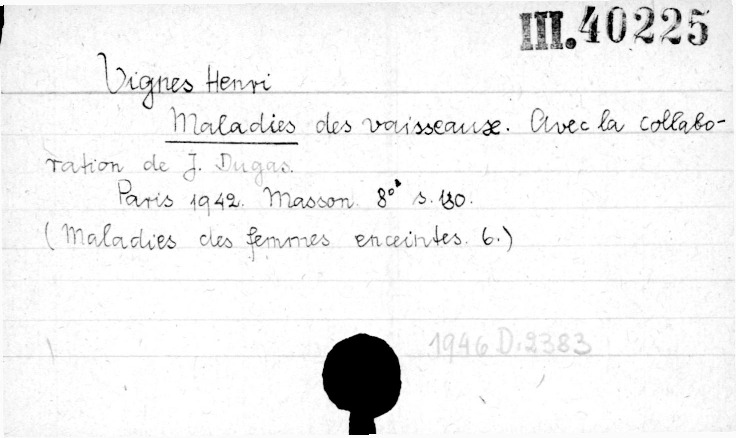 III. 40225
Vignes Henri
Maladies des vaisseaux. Avec la collabo-
ration de J. Dugas.
Paris 1942. Masson. 8° s. 130.
(Maladies des femmes enceintes. 6.)
1946 D. 2383